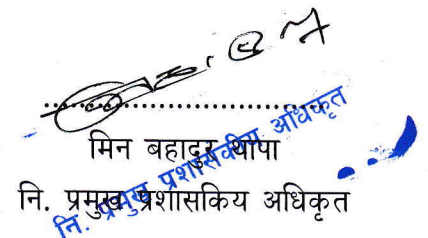 मिन बहादुर थापा
नि. प्रमुख प्रशासकिय अधिकृत
नि. प्रमुख प्रशासकीय अधिकृत